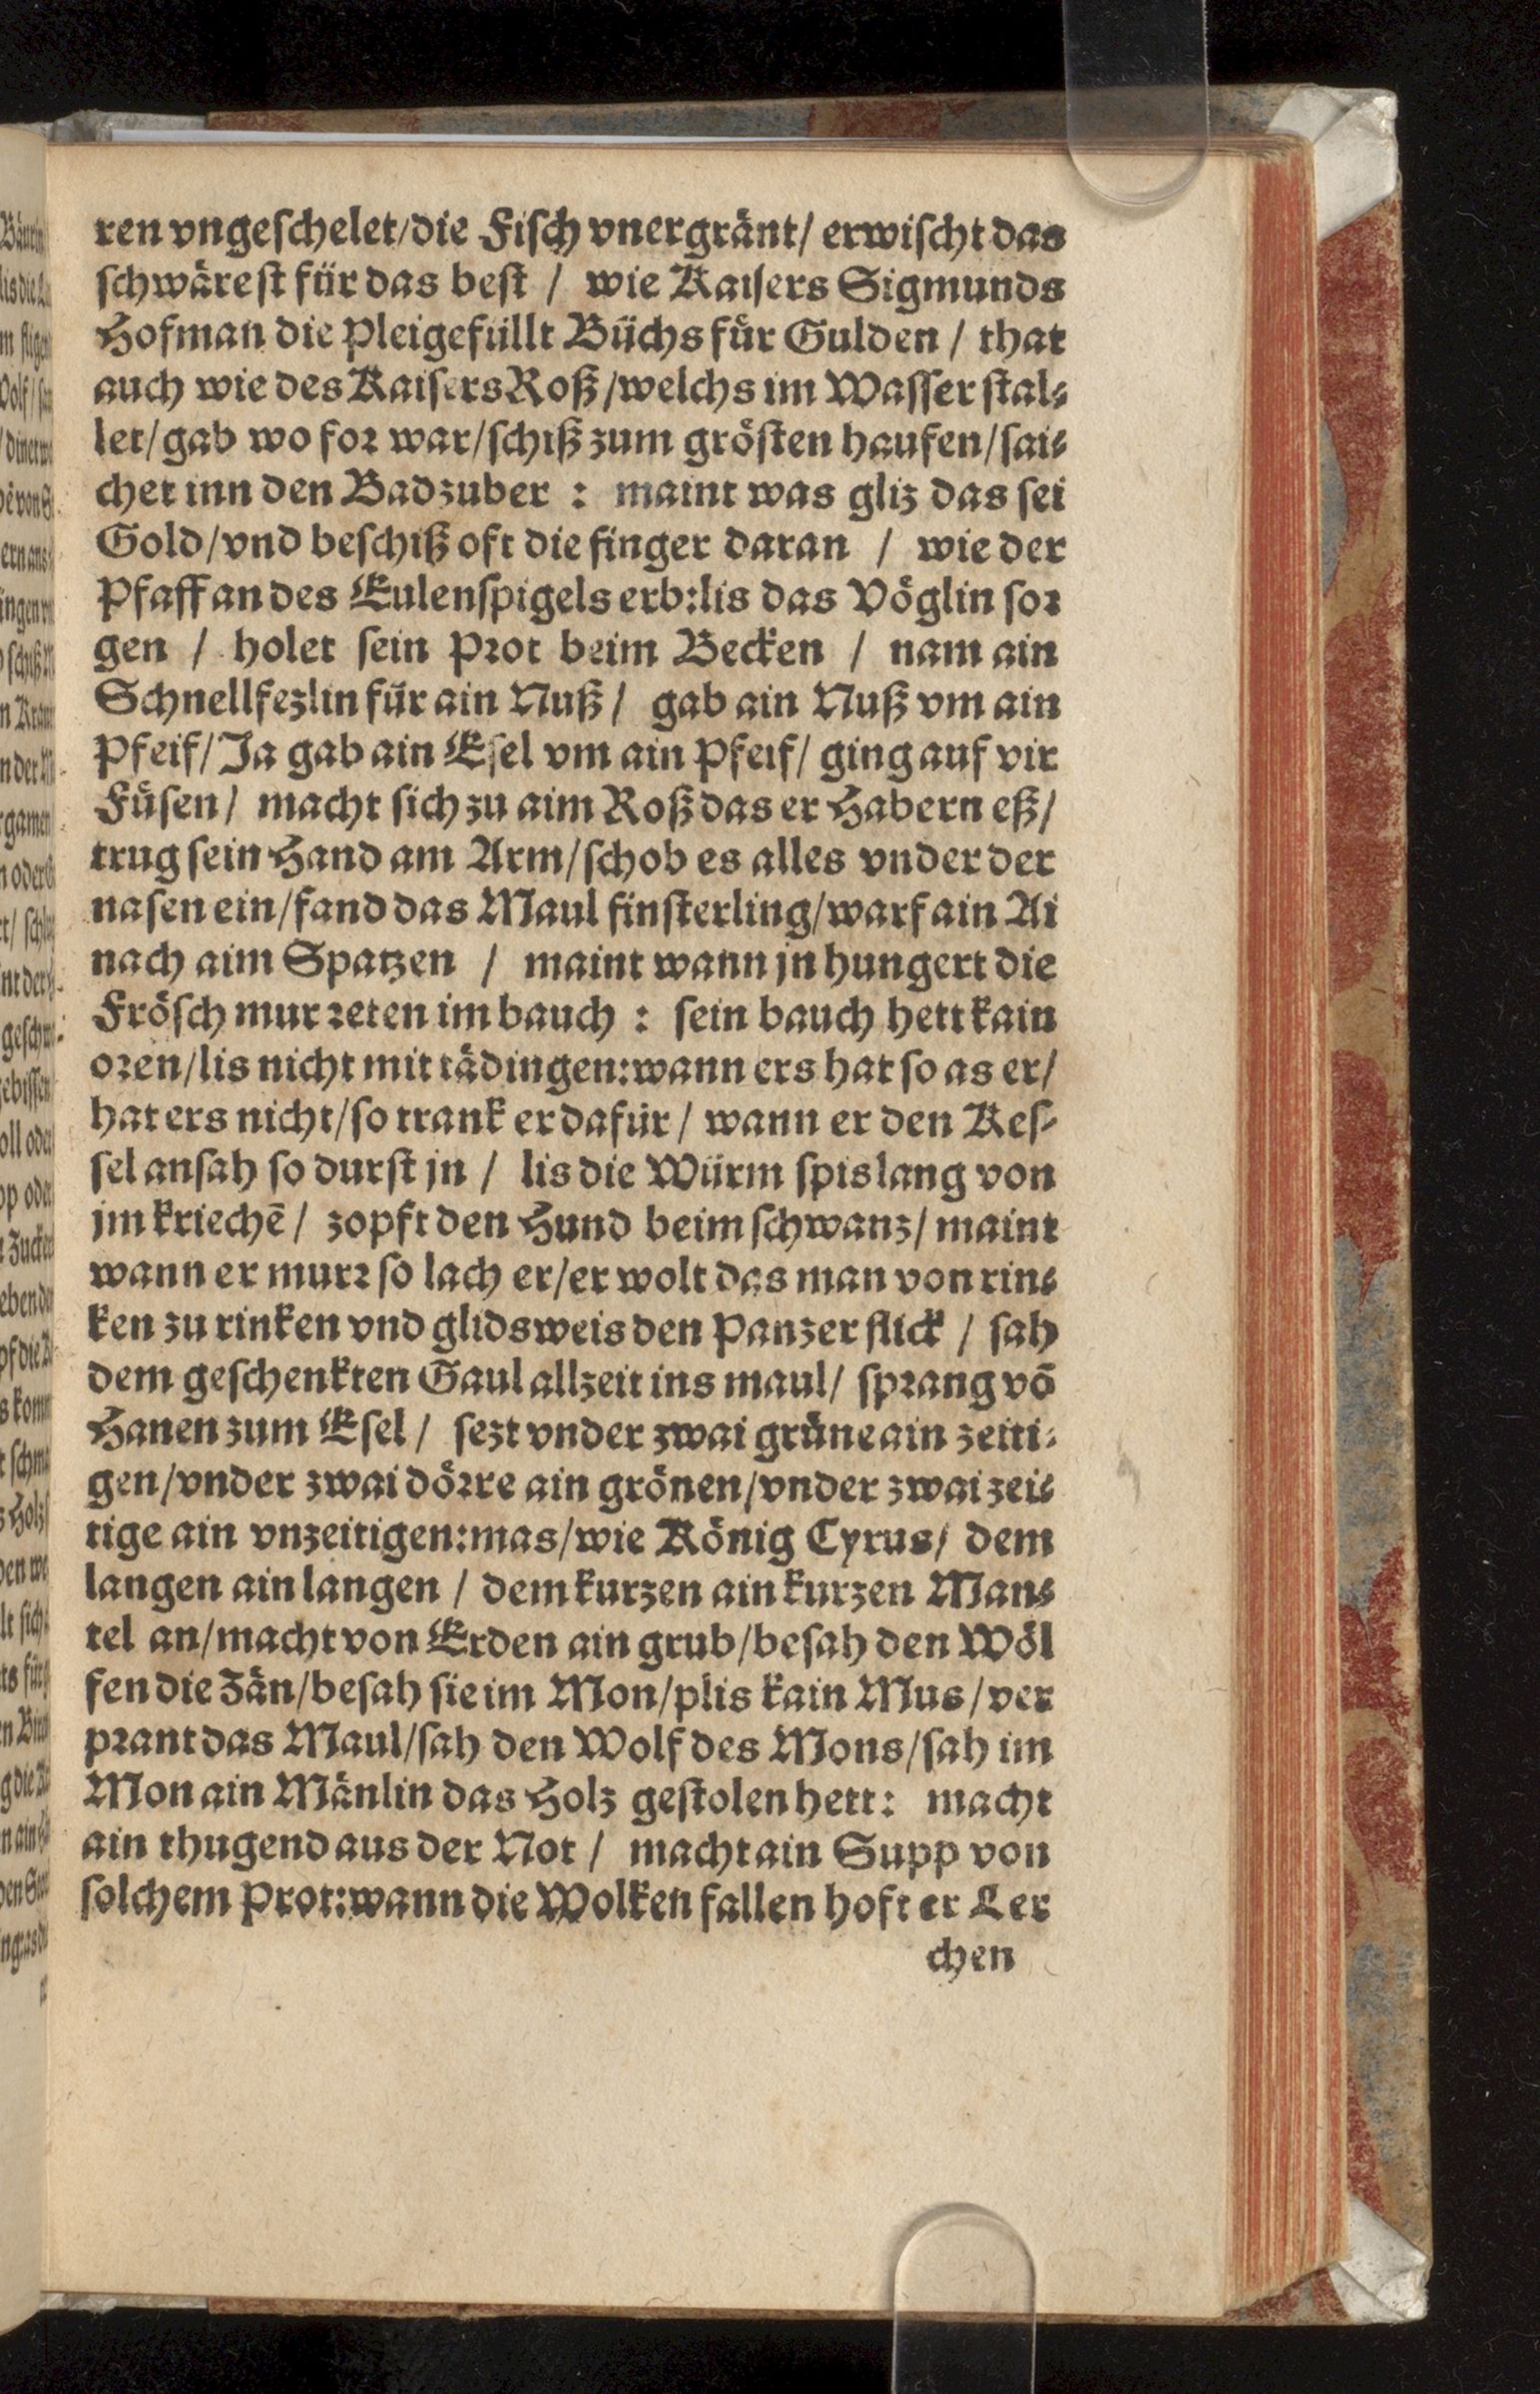 ren vngeſchelet/die Fiſch vnergraͤnt/ erwiſcht das
ſchwaͤreſt fuͤr das beſt / wie Kaiſers Sigmunds
Hofman die Pleigefuͤllt Buͤchs fuͤr Gulden / that
auch wie des Kaiſers Roß/welchs im Waſſer ſtal⸗
let/gab wo foꝛ war/ſchiß zum groͤſten haufen/ſai⸗
chet inn den Badzuber : maint was gliz das ſei
Gold/vnd beſchiß oft die finger daran / wie der
Pfaff an des Eulenſpigels erb:lis das Voͤglin ſoꝛ
gen / holet ſein Pꝛot beim Becken / nam ain
Schnellfezlin fuͤr ain Nuß/ gab ain Nuß vm ain
Pfeif/Ja gab ain Eſel vm ain Pfeif/ ging auf vir
Fuͤſen/ macht ſich zu aim Roß das er Habern eß/
trug ſein Hand am Arm/ſchob es alles vnder der
naſen ein/fand das Maul finſterling/warf ain Ai
nach aim Spatzen / maint wann jn hungert die
Froͤſch murꝛeten im bauch : ſein bauch hett kain
oꝛen/lis nicht mit taͤdingen:wann ers hat ſo as er/
hat ers nicht/ſo trank er dafuͤr/ wann er den Keſ⸗
ſel anſah ſo durſt jn / lis die Wuͤrm ſpislang von
jm kriechē/ zopft den Hund beim ſchwanz/ maint
wann er murꝛ ſo lach er/er wolt das man von rin⸗
ken zu rinken vnd glidsweis den Panzer flick / ſah
dem geſchenkten Gaul allzeit ins maul/ ſpꝛang vō
Hanen zum Eſel/ ſezt vnder zwai gruͤne ain zeiti⸗
gen/vnder zwai doͤꝛre ain groͤnen/vnder zwai zei⸗
tige ain vnzeitigen:mas/wie Koͤnig Cyrus/ dem
langen ain langen / dem kurzen ain kurzen Man⸗
tel an/macht von Erden ain grub/beſah den Woͤl
fen die Zaͤn/beſah ſie im Mon/plis kain Mus/ver
pꝛant das Maul/ſah den Wolf des Mons/ſah im
Mon ain Maͤnlin das Holz geſtolen hett: macht
ain thugend aus der Not / macht ain Supp von
ſolchem Prot:wann die Wolken fallen hoft er Ler
chen